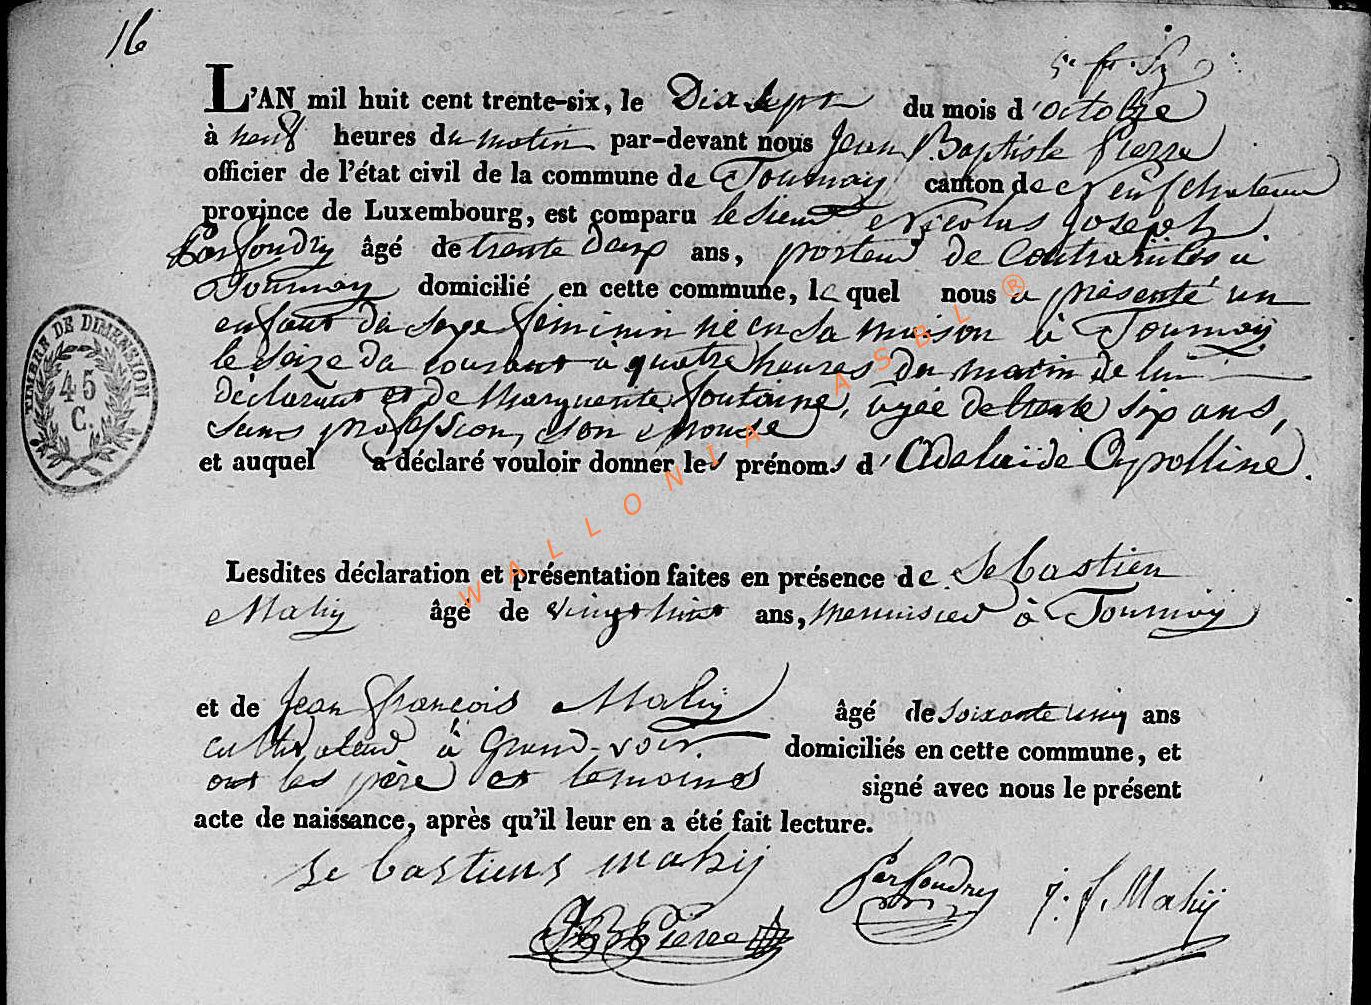 16
L'AN mil huit cent trente-six, le Dix sept du mois d'octobre
à neuf heures du matin par-devant nous Jean Baptiste Pierre
officier de l'état civil de la commune de Tournay canton de Neufchateau
province de Luxembourg, est comparu le sieur Nicolas Joseph
Parfondry âgé de trente deux ans, porteur de Contraintes à
Tournay domicilié en cette commune, le quel nous a présenté un
enfant du sexe féminin né en sa maison à Tournay
le seize du courant à quatre heures du matin de lui
déclarant et de Marguerite fontaine, agée de trente six ans,
sans profession, son épouse
et auquel a déclaré vouloir donner les prénoms d'Adelaïde Appolline.
TIMBRE DE DIMENSION
45
C.
Lesdites déclaration et présentation faites en présence de Sebastien
Mahy âgé de vingt huit ans, menuisier à Tournay
et de Jean françois Mahy âgé de soixante cinq ans
cultivateur à Grand-voir. domiciliés en cette commune, et
ont les père et témoins signé avec nous le présent
acte de naissance, après qu'il leur en a été fait lecture.
sebastiens mahij
Parfondry
j. f. Mahij
JB Pierre
WALLONIA ASBL ®